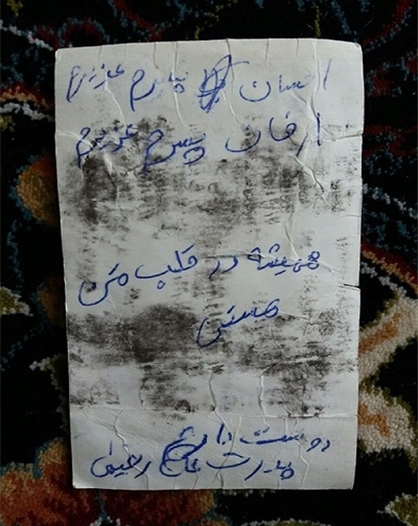 احسان پسرم عزیزم
ارفان پسرم عزیزم
همیشه در قلب من
هستی
دوست دارم
پدرت